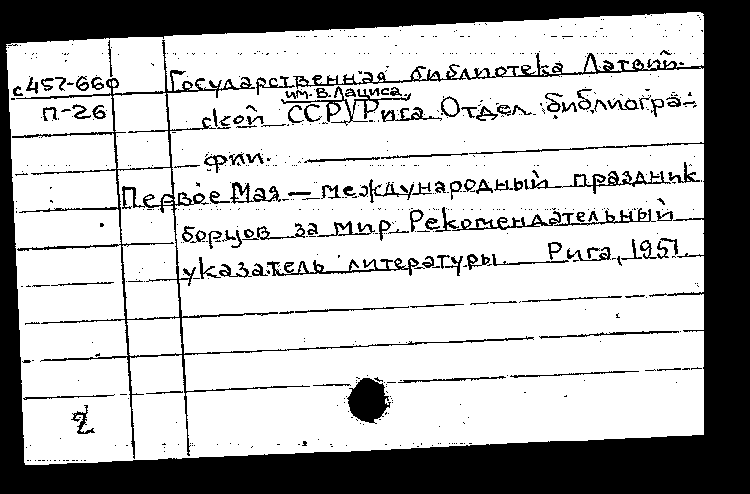 с457-660
П-26
Государственная библиотека Латвий-
им. В. Лациса,
ской ССР Рига. Отдел библиогра-
фии.
Первое Мая — международный праздник
борцов за мир. Рекомендательный
указатель литературы. Рига, 1951.
2